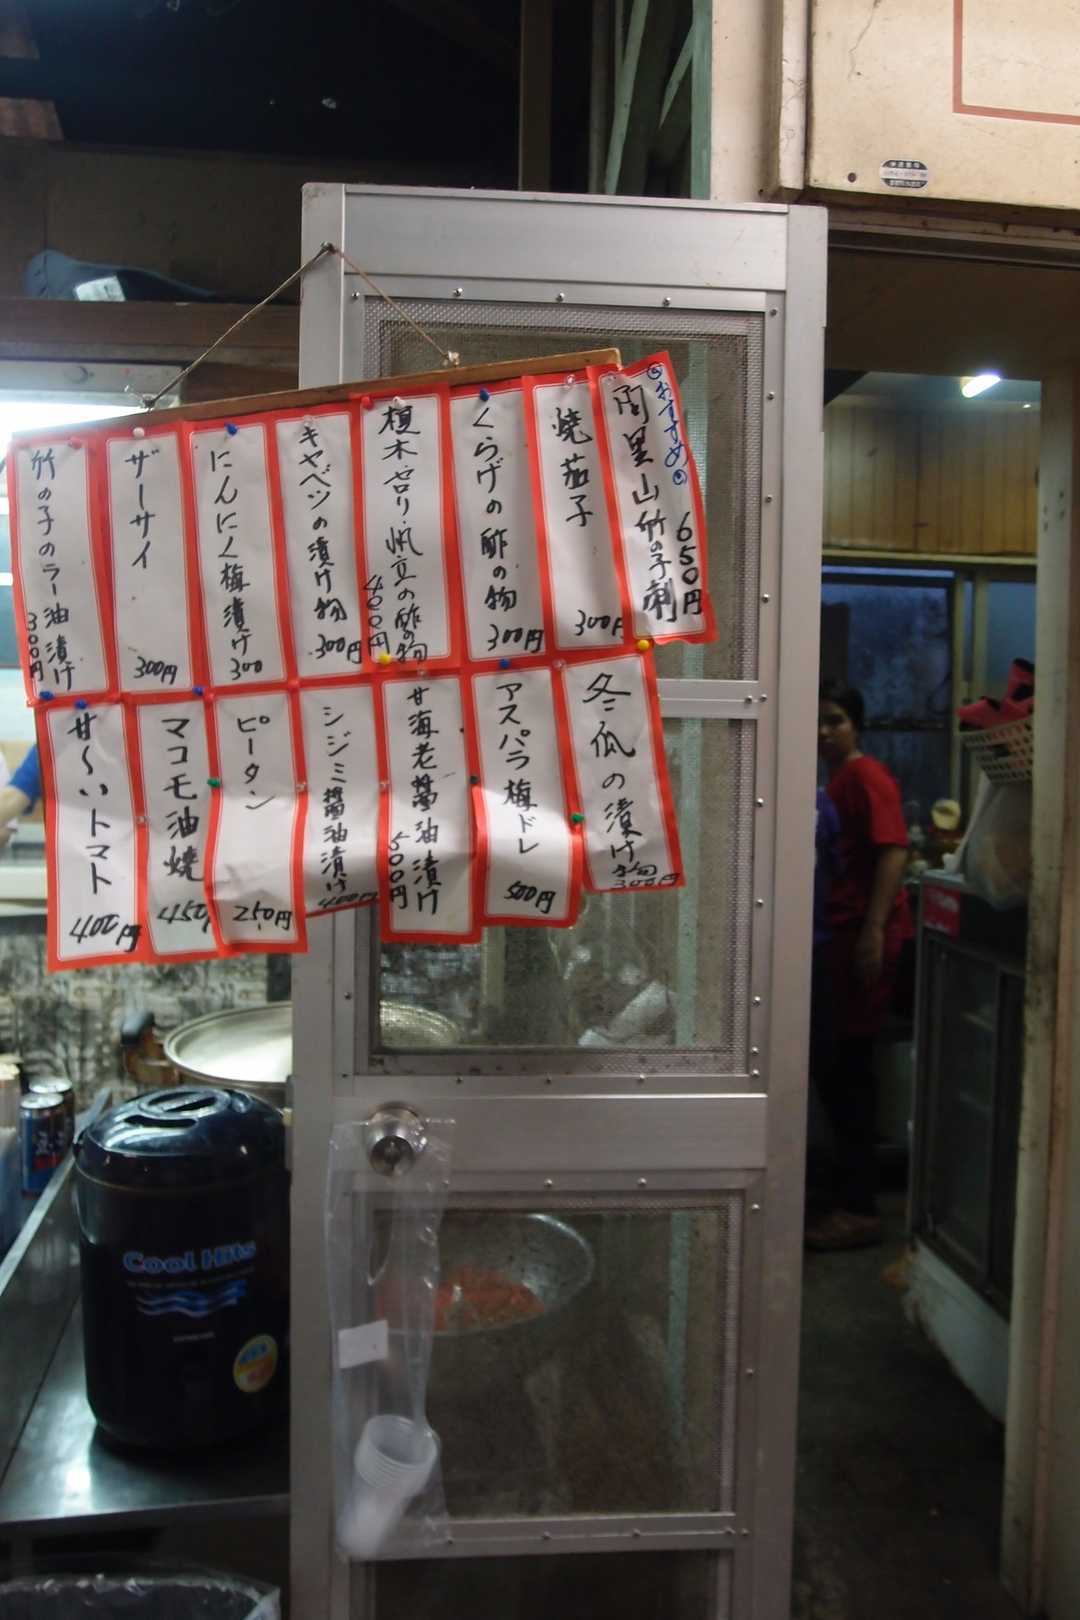 おすすめ
阿里山竹の子刺
650円
焼茄子
300円
くらげの酢の物
300円
植木セロリ・帆立の酢の物
400円
キャベツの漬け物
300円
にんにく梅漬け
300
ザーサイ
300円
竹の子のラー油漬け
300円
冬瓜の漬け物
300円
アスパラ梅ドレ
500円
甘海老醤油漬け
500円
シジミ醤油漬け
400円
ピータン
250円
マコモ油焼
450円
甘〜いトマト
400円
Cool Hits